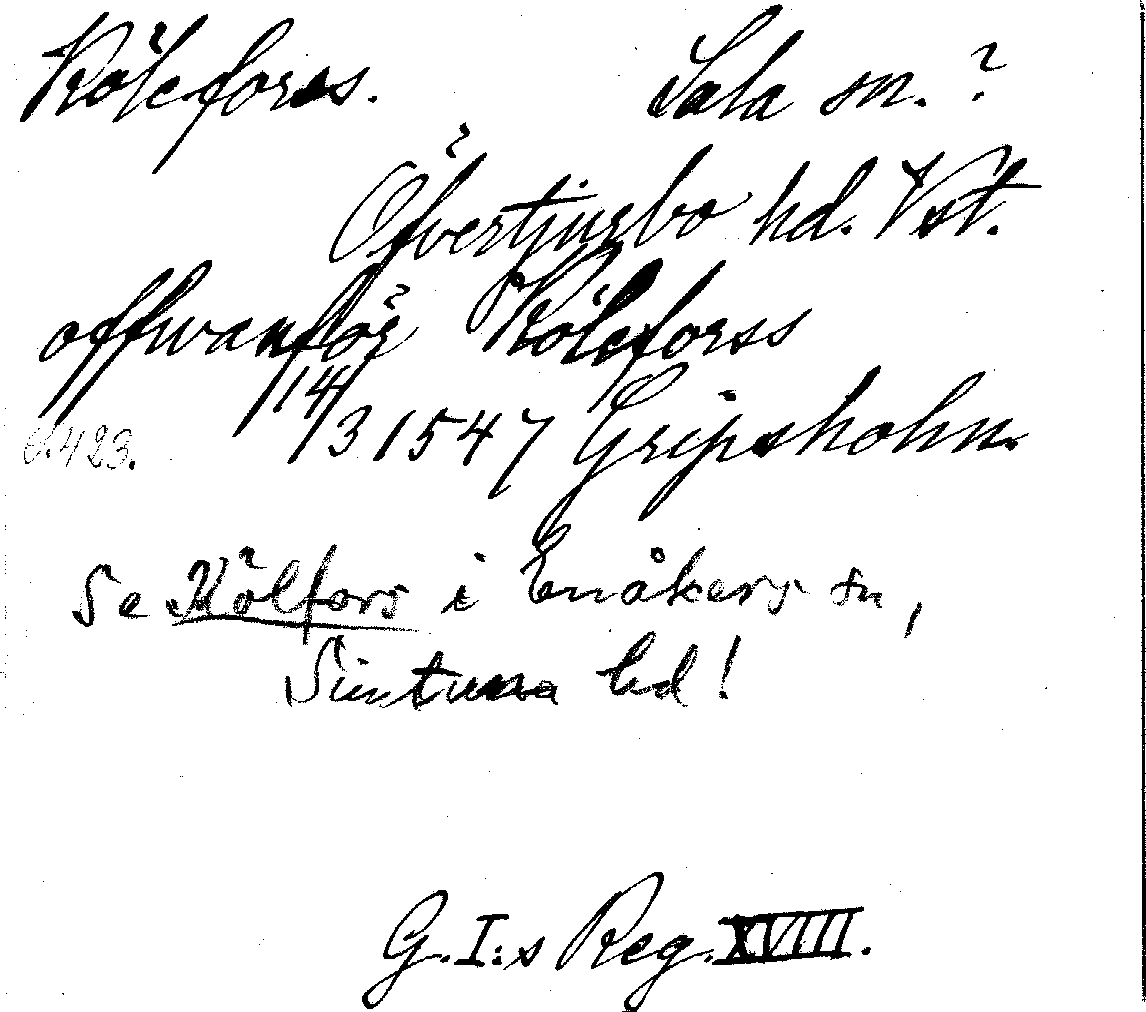 Köleforss. Sala sn. ?
Öfvertjurbo hd. Vst.
offwanför Köleforss
14/3 1547 Gripsholm.
s. 423.
Se Kölfors i Enåkers sn,
Simtuna hd!
G. I:s Reg. XVIII.